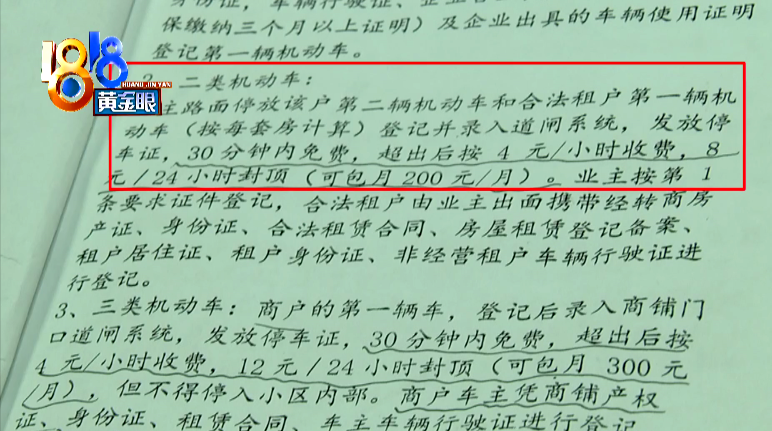 身份证，车辆行驶证、企业
保缴纳三个月以上证明）及企业出具的车辆使用证明
登记第一辆机动车。
1818
HUANG JIN YAN
黄金眼
2、二类机动车：
主路面停放该户第二辆机动车和合法租户第一辆机
动车（按每套房计算）登记并录入道闸系统，发放停
车证，30分钟内免费，超出后按 4 元/小时收费，8
元/24小时封顶（可包月200元/月）。业主按第 1
条要求证件登记，合法租户由业主出面携带经转商房
产证、身份证、合法租赁合同、房屋租赁登记备案、
租户居住证、租户身份证、非经营租户车辆行驶证进
行登记。
3、三类机动车：商户的第一辆车，登记后录入商铺门
口道闸系统，发放停车证，30分钟内免费，超出后按
4 元/小时收费，12元/24小时封顶（可包月 300 元
/月），但不得停入小区内部。商户车主凭商铺产权
证、身份证、租赁合同、车主车辆行驶证进行登记